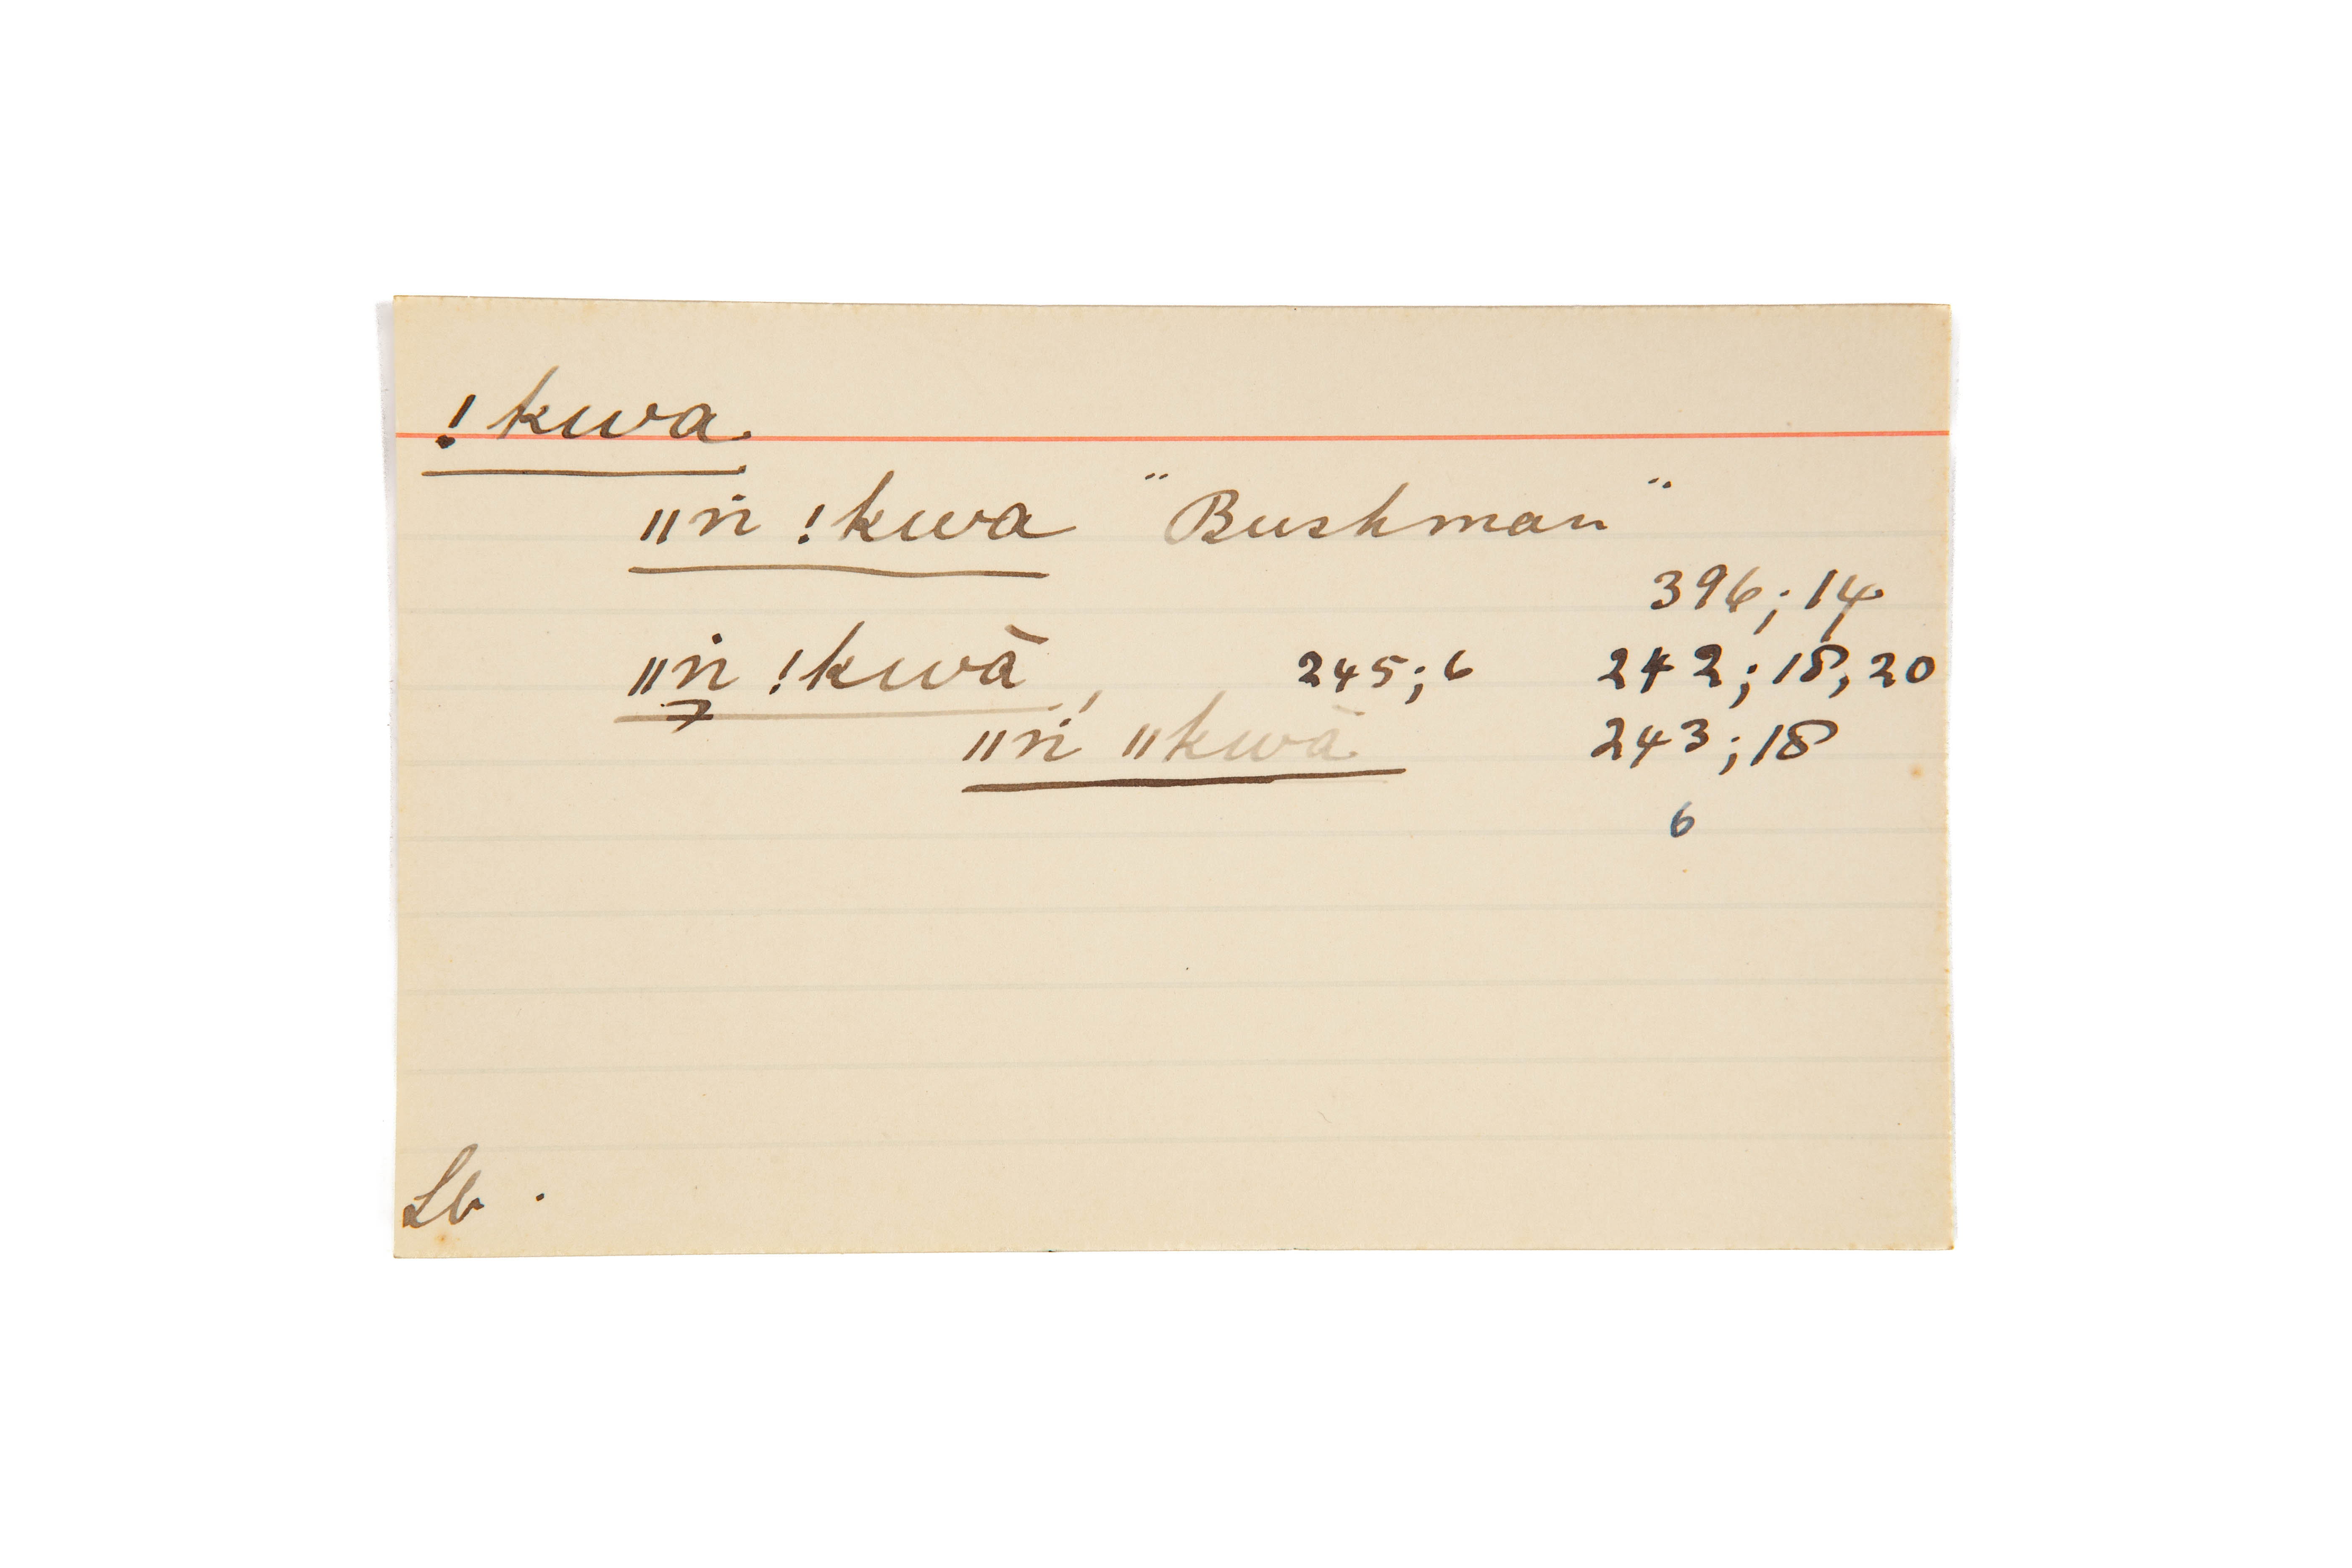 !kwa
ǁṅ !kwa "Bushman"
396; 14
ǁṅ !kwā, 245; 6 242; 18, 20
ǁṅ ǁkwā 243; 18
6
Lb.